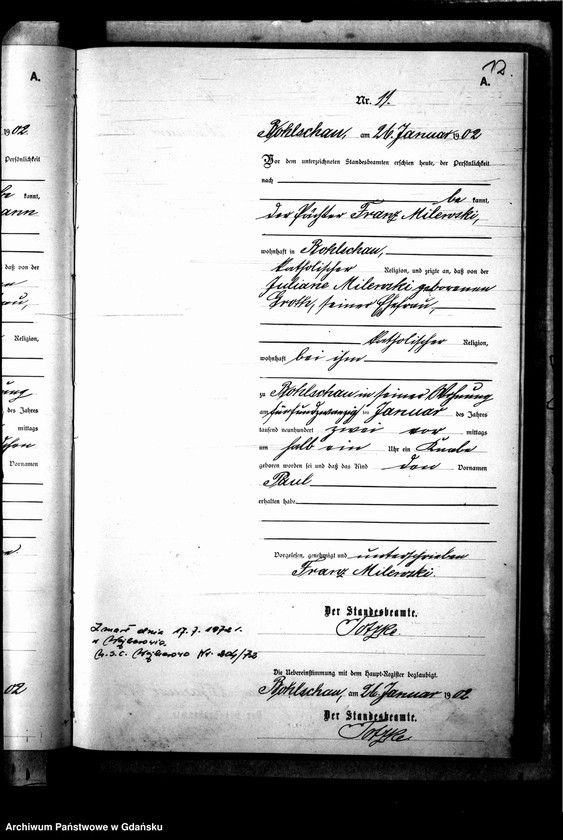 A.
12.
A.
Nr. 11.
Rohlschau, am 26. Januar 1902
Vor dem unterzeichneten Standesbeamten erschien heute, der Persönlichkeit
nach
be kannt,
der Pächter Franz Milewski,
wohnhaft in Rohlschau,
katholischer Religion, und zeigte an, daß von der
Juliane Milewski geborenen
Groth, seiner Ehefrau,
katholischer Religion,
wohnhaft bei ihm
zu Rohlschau in seiner Wohnung
am fünfundzwanzig ten Januar des Jahres
tausend neunhundert zwei vor mittags
um halb ein Uhr ein Knabe
geboren worden sei und daß das Kind den Vornamen
Paul
erhalten habe
Vorgelesen, genehmigt und unterschrieben
Franz Milewski.
Der Standesbeamte.
Totzke.
Zmarł dnia 17.7.1972 r.
w Wejherowie
U.S.C. Wejherowo Nr. 204/72
Die Uebereinstimmung mit dem Haupt-Register beglaubigt.
Rohlschau, am 26. Januar 1902
Der Standesbeamte.
Totzke.
1902
Persönlichkeit
kannt,
daß von der
Religion,
des Jahres
mittags
Vornamen
02
Archiwum Państwowe w Gdańsku